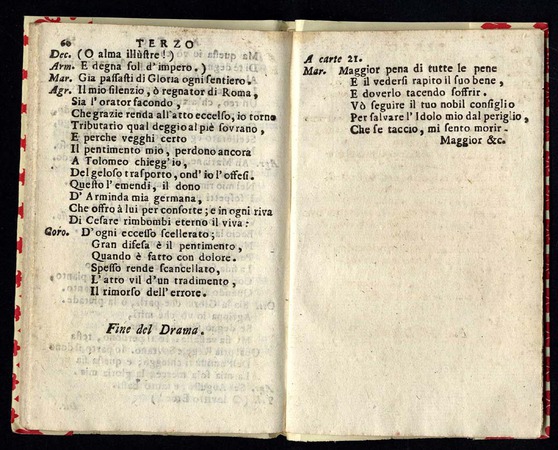 60 TERZO
Dec. (O alma illuſtre!)
Arm. E degna ſol d'impero.)
Mar. Gia paſſaſti di Gloria ogni ſentiero.
Agr. Il mio ſilenzio, ò regnator di Roma,
Sia l'orator facondo,
Che grazie renda all'atto eccelſo, io torno
Tributario qual deggio al piè ſovrano,
E perche vegghi certo
Il pentimento mio, perdono ancora
A Tolomeo chiegg'io,
Del geloso traſporto, ond'io l'offeſi.
Queſto l'emendi, il dono
D'Arminda mia germana,
Che offro à lui per conſorte; e in ogni riva
Di Ceſare rimbombi eterno il viva.
Coro. D'ogni ecceſſo ſcellerato;
Gran difeſa è il pentimento,
Quando è fatto con dolore.
Speſſo rende ſcancellato,
L'atro vil d'un tradimento,
Il rimorſo dell'errore.
Fine del Drama.
A carte 21.
Mar. Maggior pena di tutte le pene
E il vederſi rapito il ſuo bene,
E doverlo tacendo ſoffrir.
Vò ſeguire il tuo nobil conſiglio
Per ſalvare l'Idolo mio dal periglio,
Che ſe taccio, mi ſento morir.
Maggior &c.